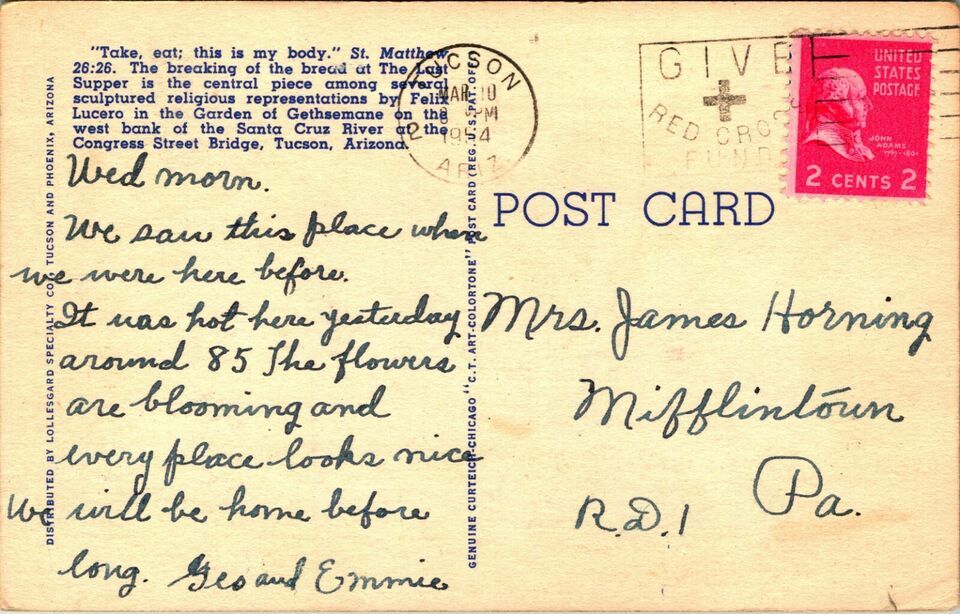 "Take, eat; this is my body." St. Matthew
26:26. The breaking of the bread at The Last
Supper is the central piece among several
sculptured religious representations by Felix
Lucero in the Garden of Gethsemane on the
west bank of the Santa Cruz River at the
Congress Street Bridge, Tucson, Arizona.
Wed morn.
We saw this place when
we were here before.
It was hot here yesterday
around 85 The flowers
are blooming and
every place looks nice
We will be home before
long. Geo and Emmie
DISTRIBUTED BY LOLLESGARD SPECIALTY CO., TUCSON AND PHOENIX, ARIZONA
GENUINE CURTEICH-CHICAGO "C.T. ART-COLORTONE" POST CARD (REG. U.S. PAT. OFF.)
TUCSON
MAR 10
PM
1954
ARIZ
2
GIVE
RED CROSS
FUND
UNITED
STATES
POSTAGE
JOHN
ADAMS
1797-1801
2 CENTS 2
POST CARD
Mrs. James Horning
Mifflintown
Pa.
R.D. 1